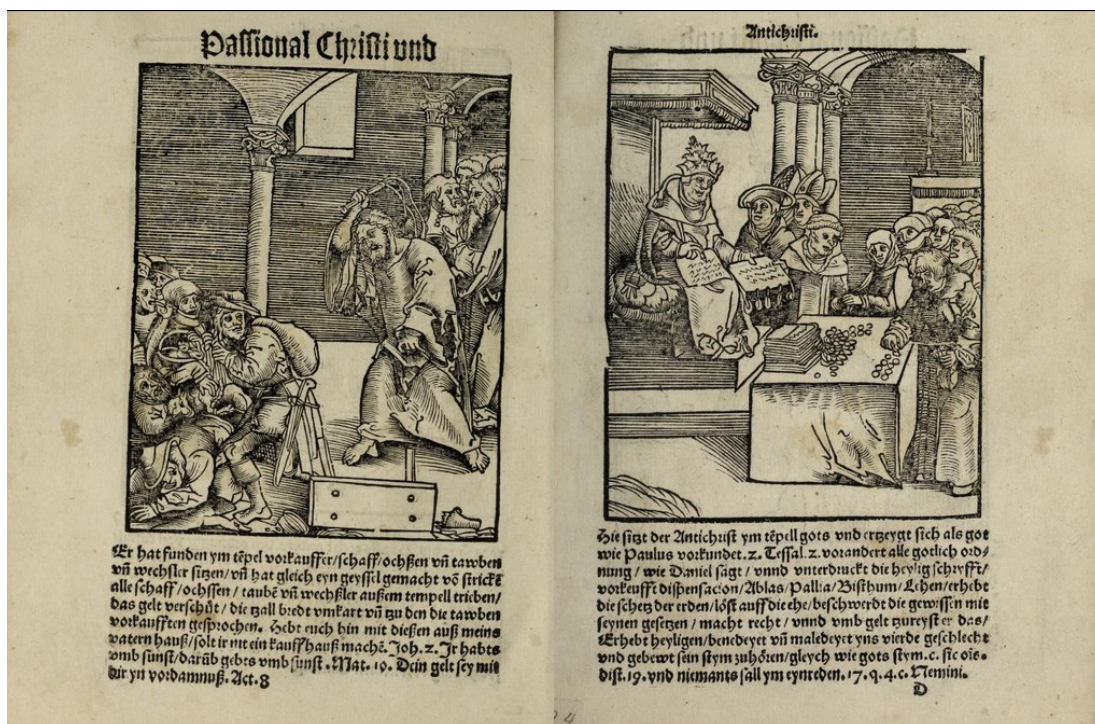 Passional Christi und
Er hat funden ym tẽpel vorkauffer/schaff/ochßen vñ tawben
vñ wechsler sitzen/vñ hat gleich eyn geyssel gemacht võ strickẽ
alle schaff/ochssen/taubẽ vñ wechßler außem tempell trieben/
das gelt verschüt/die tzall bredt vmkart vñ zu den die tawben
vorkaufften gesprochen. Hebt euch hin mit dießen auß meins
vatern hauß/solt ir nit ein kauffhauß machẽ. Joh. z. Jr habts
vmb sunst/darũb gebts vmb sunst. Mat. 10. Dein gelt sey mit
dir yn vordamnuß. Act. 8
Antichristi.
Hie sitzt der Antichrist ym tẽpell gots vnd ertzeygt sich als got
wie Paulus vorkundet. z. Tessal. z. vorandert alle gotlich ord-
nung/wie Daniel sagt/vnnd vnterdruckt die heylig schryfft/
vorkeufft dispensacion/Ablas/Pallia/Bisthum/Lehen/erhebt
die schetz der erden/löst auff die ehe/beschwerdt die gewissen mit
seynen gesetzen/macht recht/vnnd vmb gelt zureyst er das/
Erhebt heyligen/benedeyet vñ maledeyet yns vierde geschlecht
vnd gebewt sein stym zuhören/gleych wie gots stym. c. sic oĩs.
dist. 19. vnd niemants sall ym eynreden. 17. q. 4. c. Nemini.
D